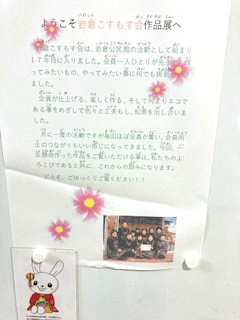 ようこそ岩倉こすもす会作品展へ
倉こすもす会は、岩倉公民館の活動として始まり
17年目に入りました。会員一人ひとりが先生
ってみたいもの、やってみたい事に何でも挑
ました。
全員が仕上げる、楽しく作る、そして何よりエコで
ある事をめざして色々と工夫もし、知恵を出し合いま
した。
月に一度の活動ですが毎回ほぼ全員が集い、会員同
士のつながりもいい感じになってきました。今回、
作った作品をご覧いただける事は、私たちのよ
ろこびであると共に、これからの励みになります。
どうぞ、ごゆっくりご覧ください！！